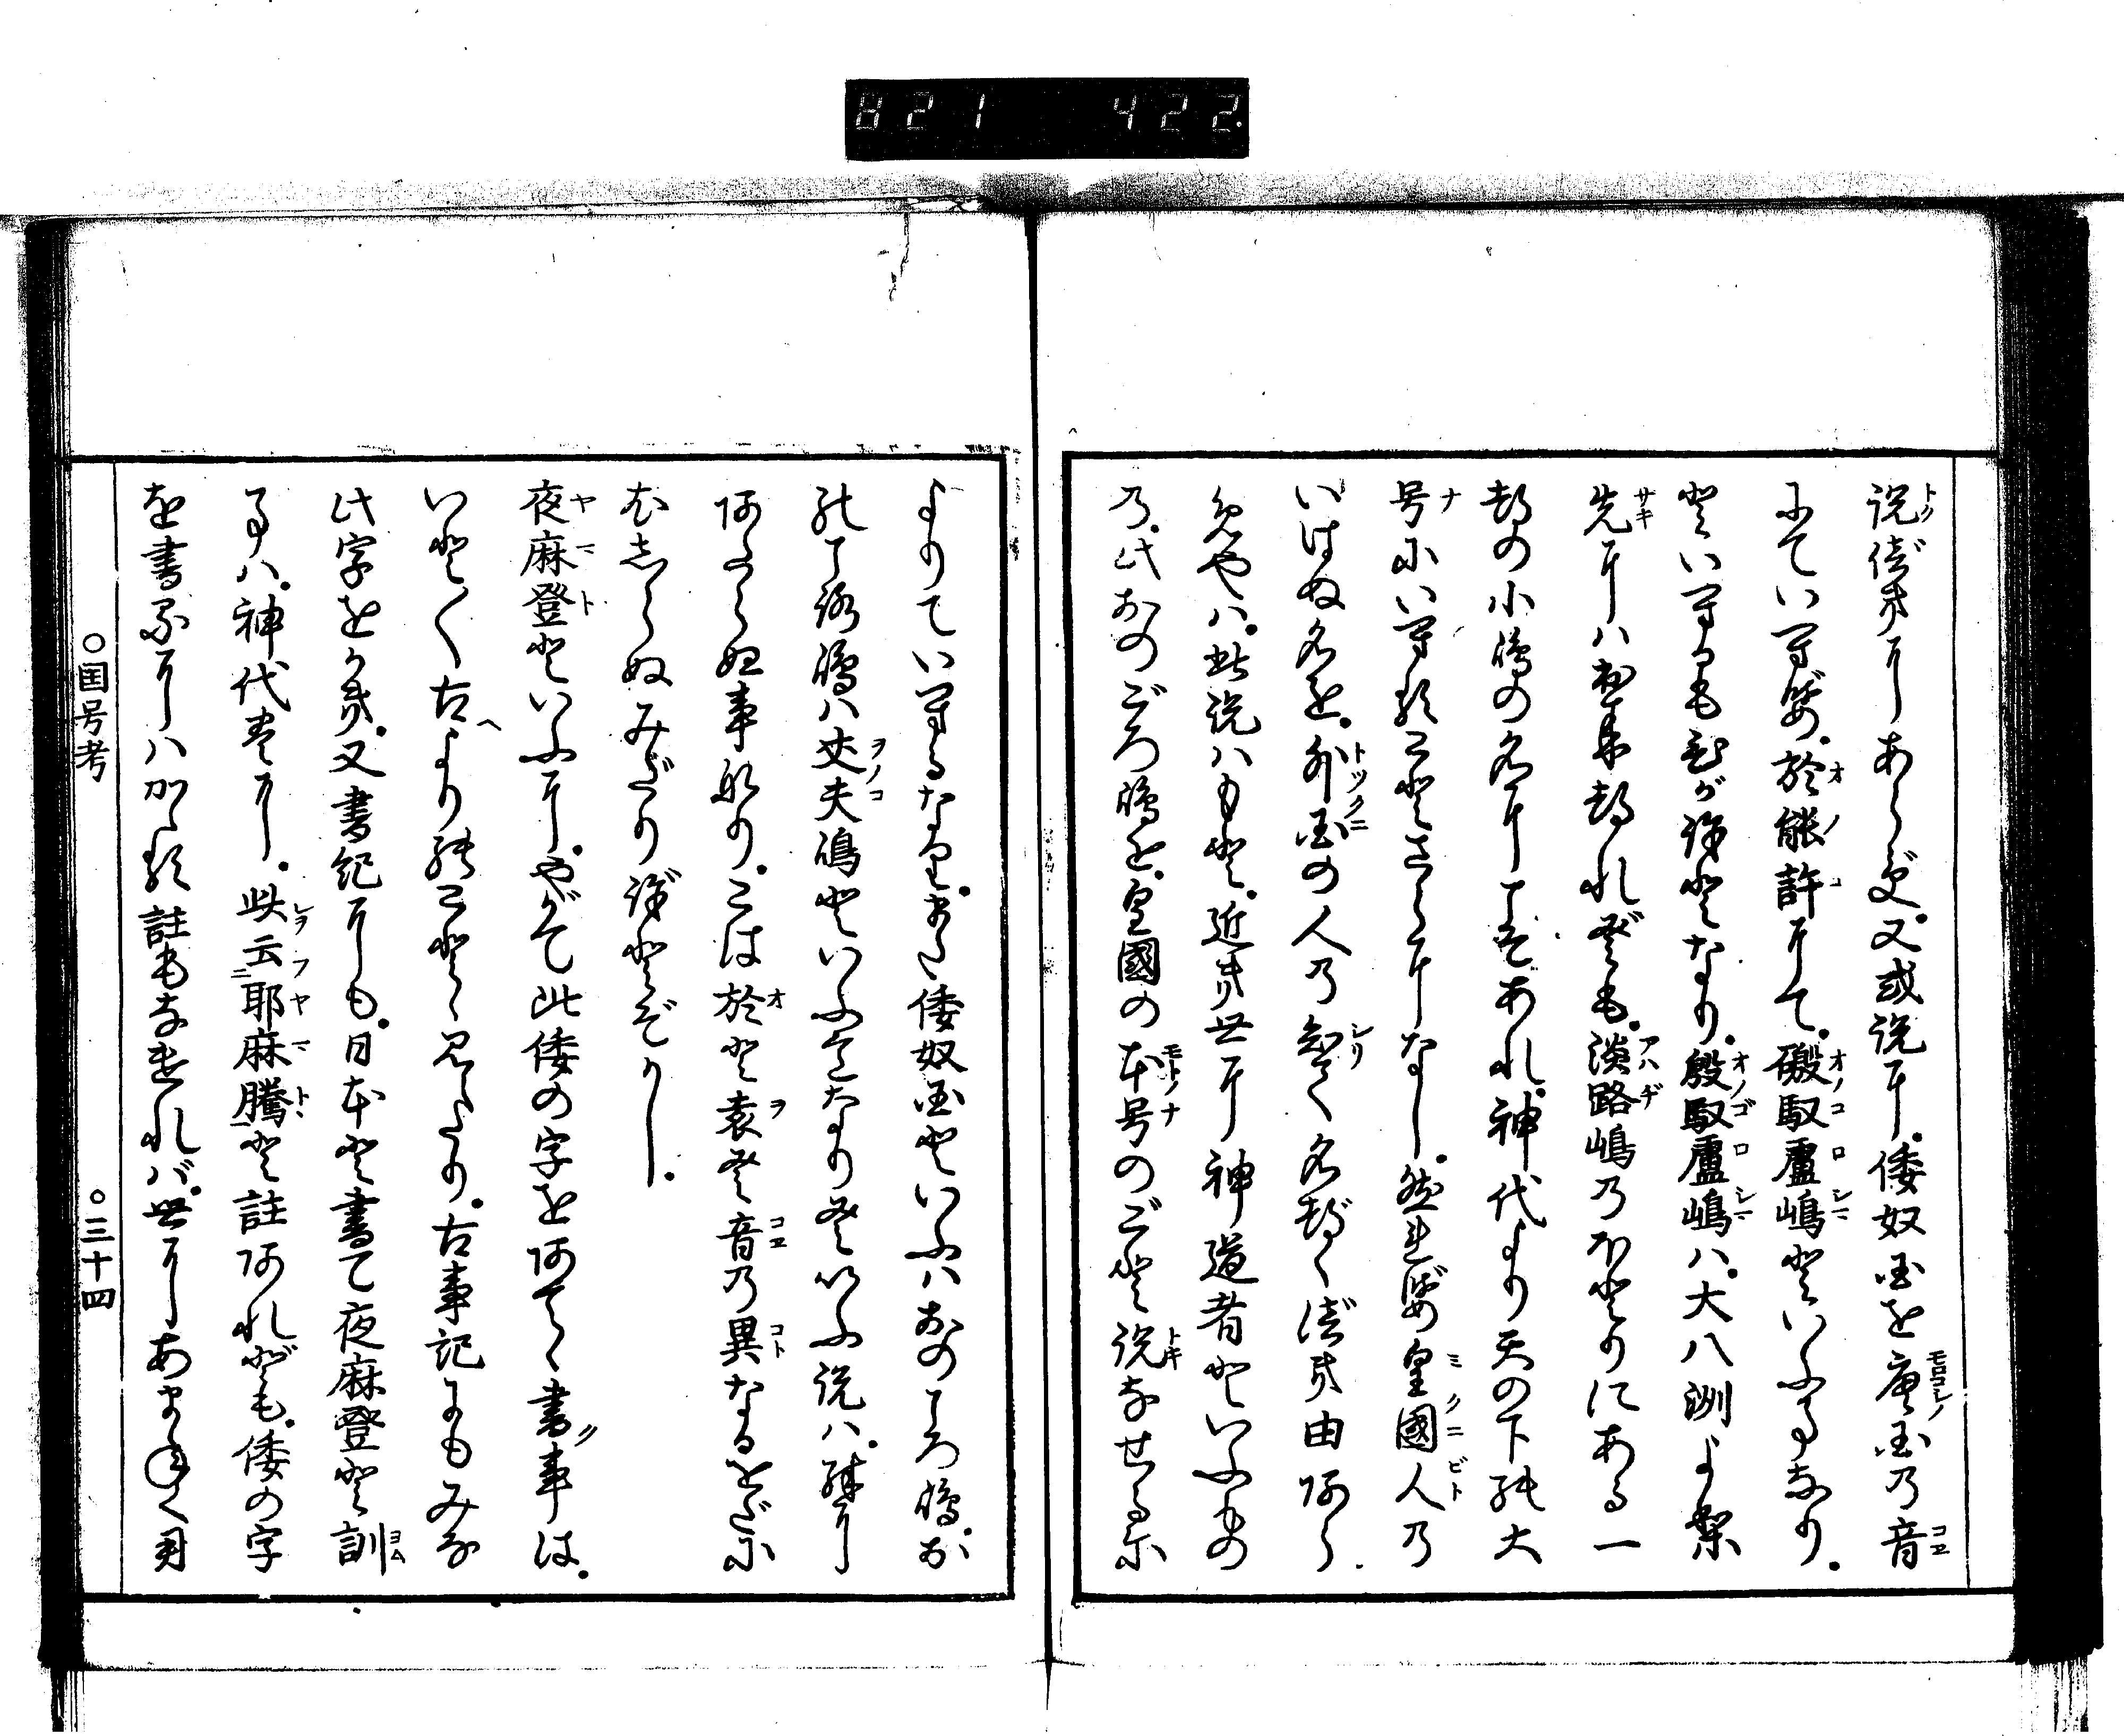 821 422
説べきにあらず。又或説に。倭奴国を唐国の音
にていへば。於能許にて。磤馭盧嶋といふ事なり。
といへるも皆ひがことなり。磤馭盧嶋ハ。大八洲より
先に出来つれども。淡路嶋のほとりにある一
つの小嶋の名にこそあれ。神代より天の下の大
号にいへることさらになし。然れば皇國人の
いはぬ名を。外国の人の知て名づくべき由あら
めやハ。此説ハもと。近き世に神道者といふもの
の。此おのごろ嶋を。皇國の本号のごと説なせるに
よりていへるなり。また倭奴国といふハおのころ嶋。お
のころ嶋ハ丈夫嶋といふことなりといふ説ハ。殊に
あたらぬ事なり。こは於と袁と音の異なるをだに
わきまへしらぬみだりごとぞかし。
夜麻登といふに。やがて此倭の字をあてゝ書事は。
いと〳〵古へよりのことゝ見えたり。古事記にもみな
此字をかき。又書紀にも。日本と書て夜麻登と訓
事ハ。神代巻に。此云耶麻騰と註あれども。倭の字
を書るにハかゝる註もなければ。世にあまねく用
○国号考 ○三十四